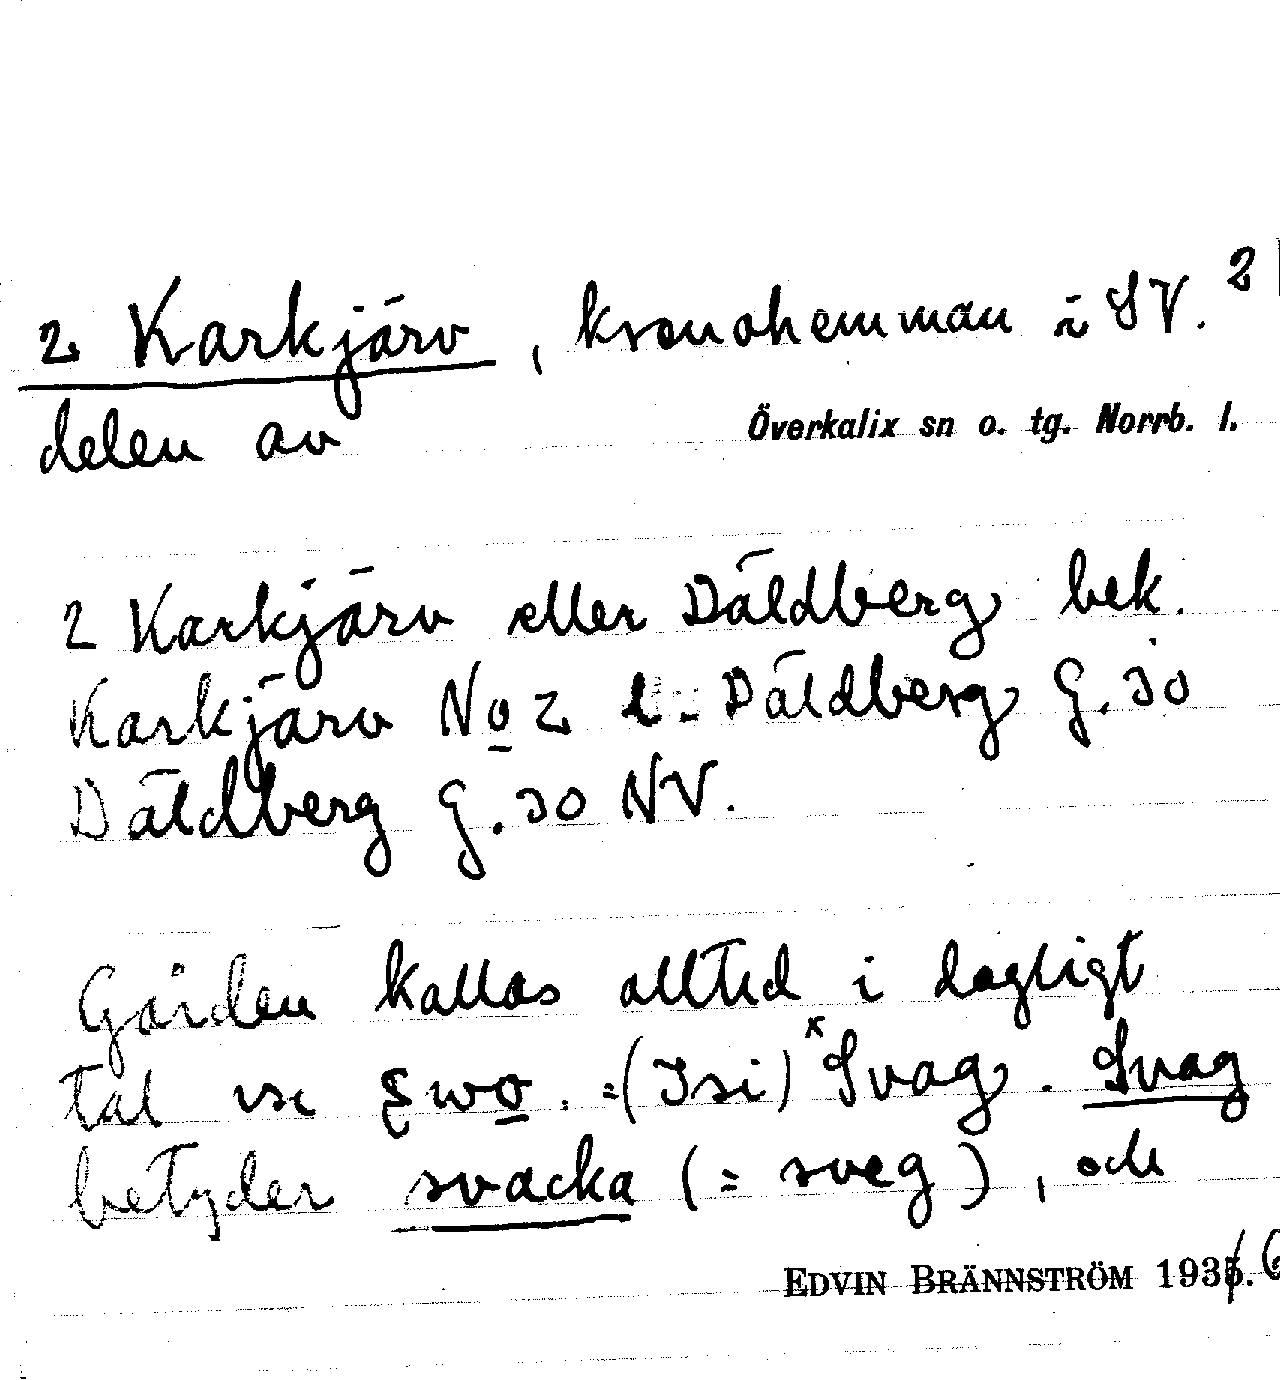 2 Karkjärv, kronohemman i SV. 2
delen av
Överkalix sn o. tg. Norrb. l.
2 Karkjärv eller Däldberg bek.
Karkjärv No 2 l: Däldberg G. 30
Däldberg G. 30 NV.
Gården kallas alltid i dagligt
tal =( ) ˣSvag. Svag
betyder svacka (= sveg), och
EDVIN BRÄNNSTRÖM 193 . 6